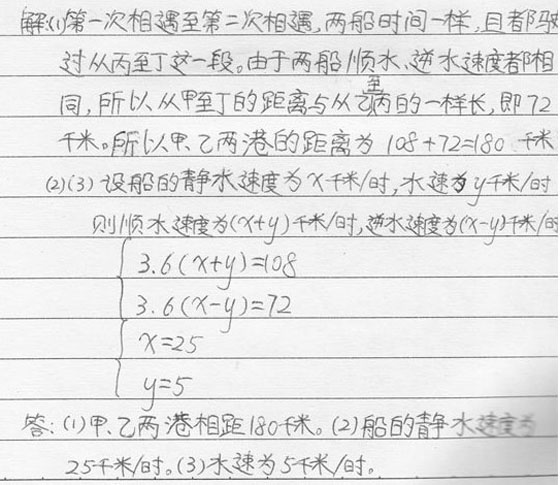 解:(1)第一次相遇至第二次相遇,两船时间一样,且都驶
过从丙至丁这一段。由于两船顺水、逆水速度都相
同,所以从甲至丁的距离与从乙至丙的一样长,即72
千米。所以甲、乙两港的距离为 108+72=180 千米
(2)(3) 设船的静水速度为x千米/时,水速为y千米/时
则顺水速度为(x+y)千米/时,逆水速度为(x-y)千米/时
3.6(x+y)=108
3.6(x-y)=72
x=25
y=5
答:(1)甲、乙两港相距180千米。(2)船的静水速度为
25千米/时。(3)水速为5千米/时。